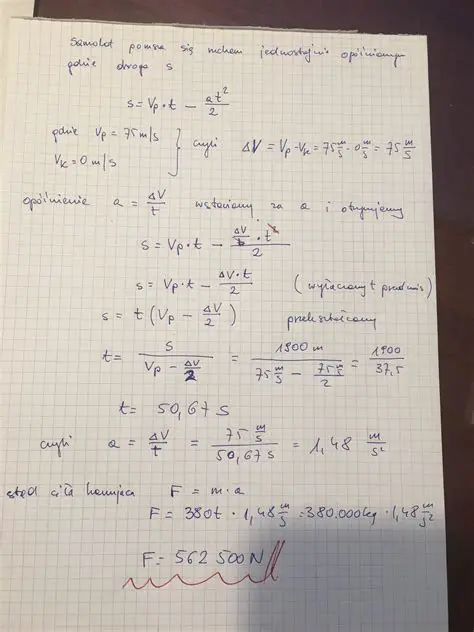 Samolot porusza się ruchem jednostajnie opóźnionym
gdzie droga s
s = Vp·t - at²/2
gdzie Vp = 75 m/s
Vk = 0 m/s } czyli ΔV = Vp - Vk = 75 m/s - 0 m/s = 75 m/s
opóźnienie a = ΔV/t wstawiamy za a i otrzymujemy
s = Vp·t - (ΔV/t · t²)/2
s = Vp·t - ΔV·t/2 (wyłączamy t przed nawias)
s = t (Vp - ΔV/2) przekształcamy
t = s/(Vp - ΔV/2) = 1900 m/(75 m/s - (75 m/s)/2) = 1900/37,5
t = 50,67 s
czyli a = ΔV/t = (75 m/s)/(50,67 s) = 1,48 m/s²
stąd siła hamująca F = m·a
F = 380t · 1,48 m/s = 380.000kg · 1,48 m/s²
F = 562 500 N